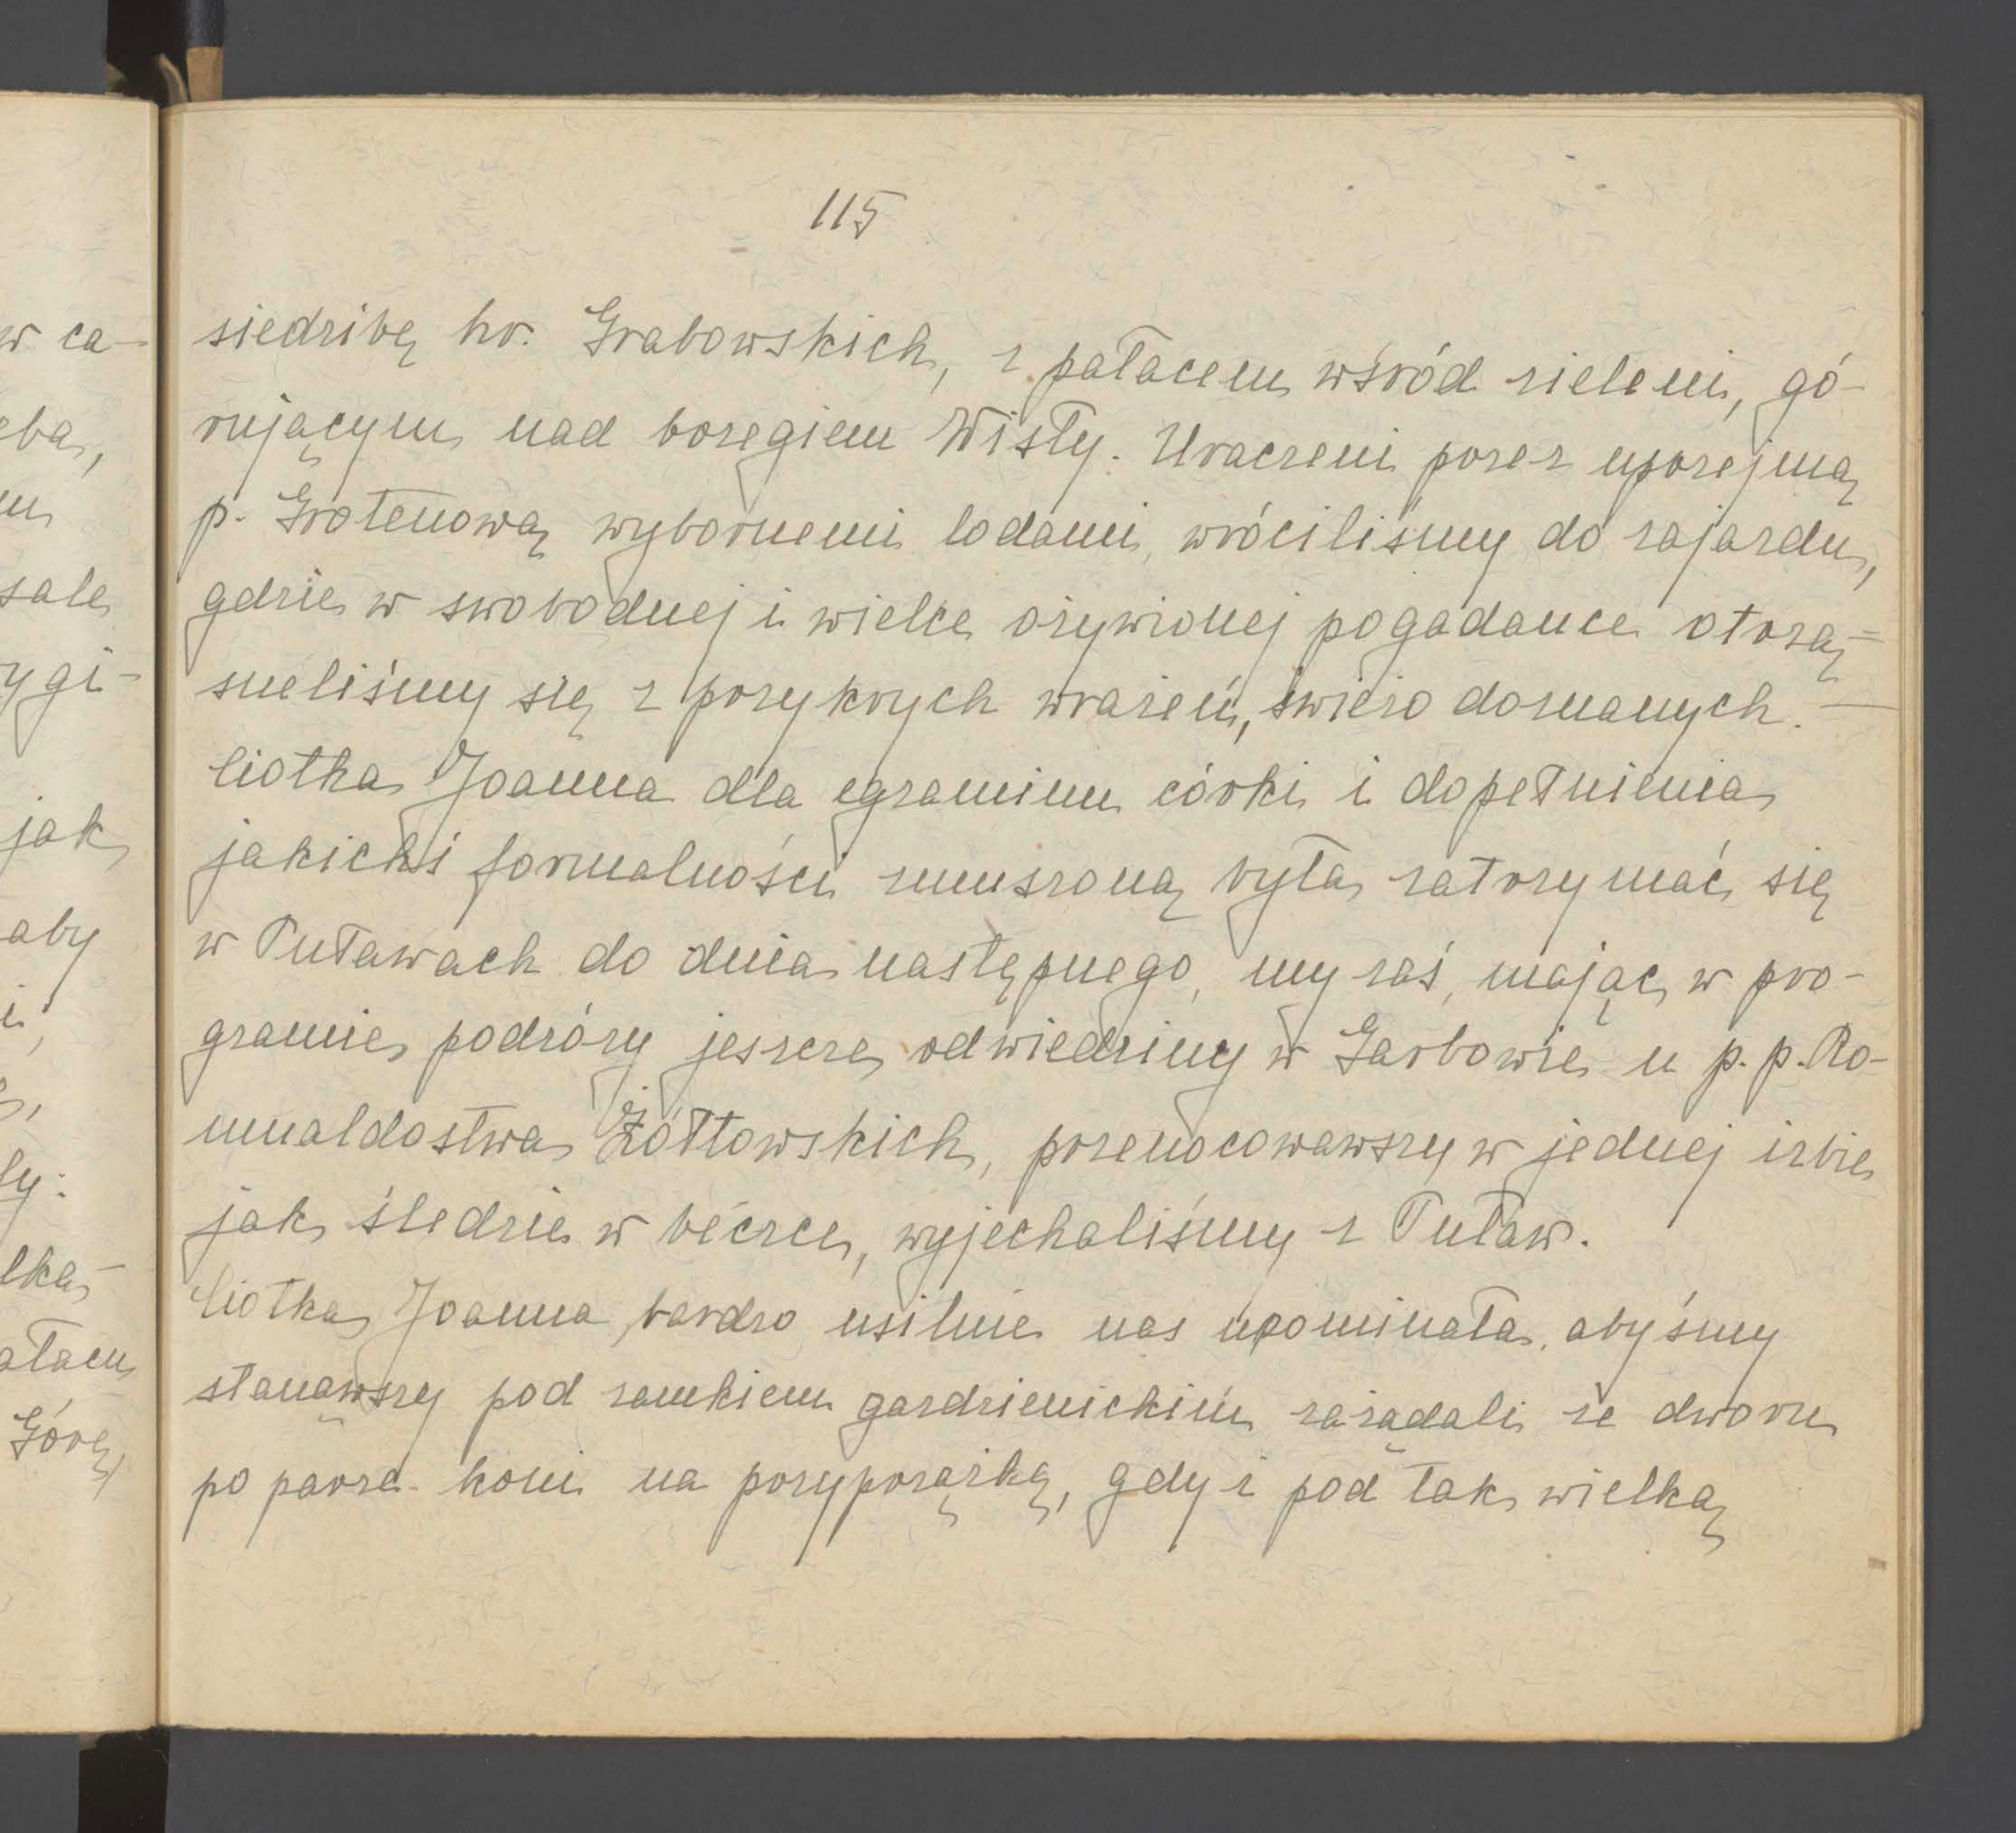 115
siedzibę hr. Grabowskich, z pałacem wśród zieleni, gó-
rującym nad brzegiem Wisły. Uraczeni przez uprzejmą
p. Grotenową wybornemi lodami, wróciliśmy do zajazdu,
gdzie w swobodnej i wielce ożywionej pogadance otrzą=
sneliśmy się z przykrych wrażeń, świeżo doznanych. —
Ciotka Joanna dla egzaminu córki i dopełnienia
jakichśi formalności zmuszoną była zatrzymać się
w Puławach do dnia następnego, my zaś, mając w pro-
gramie podróży jeszcze odwiedziny w Garbowie u p. p. Ro-
mualdostwa Żółtowskich, przenocowawszy w jednej izbie
jak śledzie w beczce, wyjechaliśmy z Puław.
Ciotka Joanna bardzo usilnie nas upominała, abyśmy
stanąwszy pod zamkiem gardzienickim zażądali ze dworu
po parze koni na przyprzążkę, gdyż pod tak wielką
w ca-
eba,
m
sale
ygi-
jak
aby
i,
ly.
lka-
ałacu
Górę,